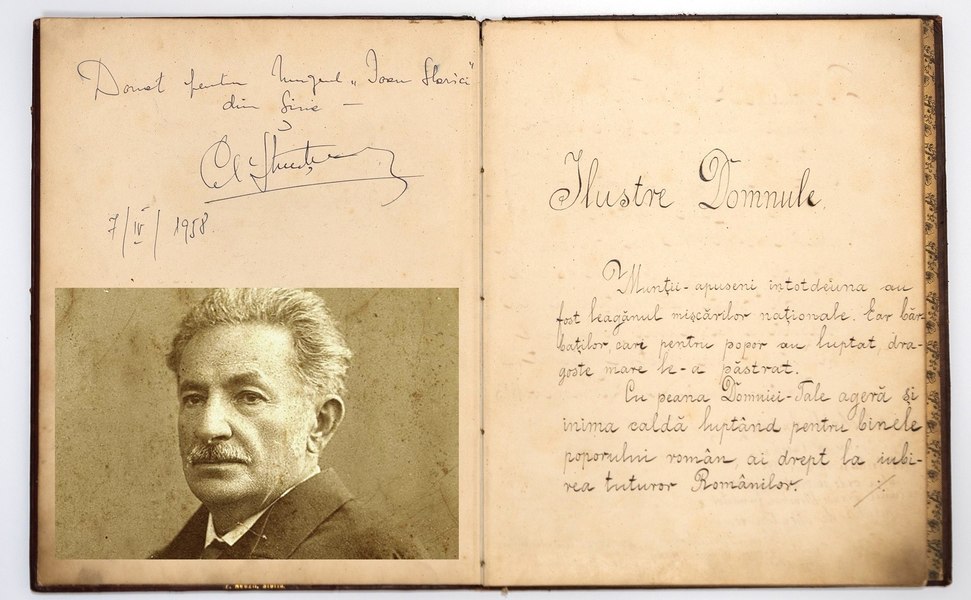 Donat pentru Muzeul „Ioan Slavici"
din Siria —
7/IV/1958
Ilustre Domnule
Munții-apuseni întotdeuna au
fost leagănul mișcărilor naționale. Ear băr-
baților, cari pentru popor au luptat, dra-
goste mare le-a păstrat.
Cu peana Domniei-Tale ageră și
inima caldă luptând pentru binele
poporului român, ai drept la iubi-
rea tuturor Românilor.